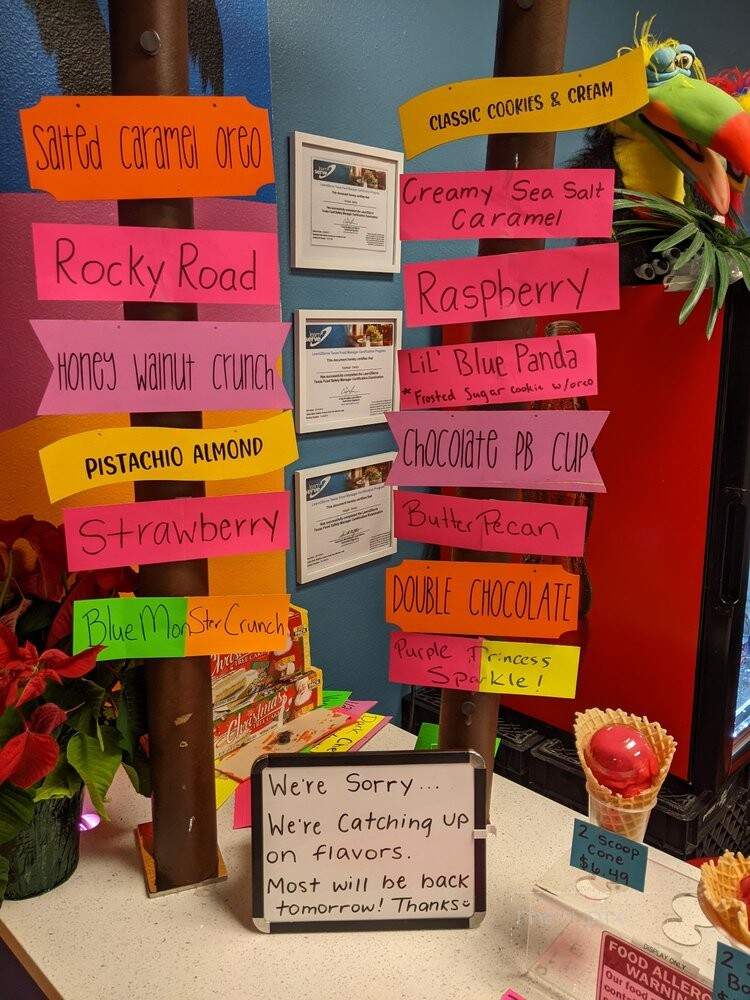 Salted Caramel Oreo
Rocky Road
Honey Walnut Crunch
PISTACHIO ALMOND
Strawberry
Blue Monster Crunch
CLASSIC COOKIES & CREAM
Creamy Sea Salt
Caramel
Raspberry
LiL' Blue Panda
*Frosted Sugar cookie w/oreo
Chocolate PB CUP
Butter Pecan
DOUBLE CHOCOLATE
Purple Princess
Sparkle!
Christmas
We're Sorry...
We're Catching up
on flavors.
Most will be back
tomorrow! Thanks
2 Scoop
Cone
$6.49
DISPLAY ONLY
FOOD ALLERG
WARNIN
Our food
2